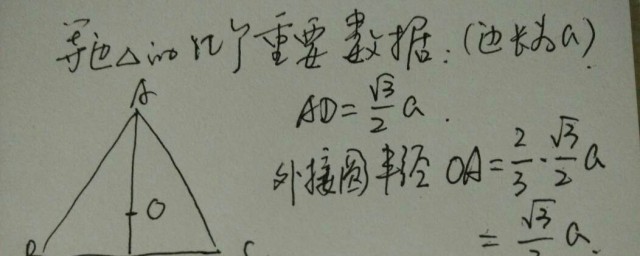 等边△的几个重要数据:(边长为a)
A
AD=√3/2 a.
外接圆半径 OA=2/3·√3/2 a
O
=√3/3 a.
B C